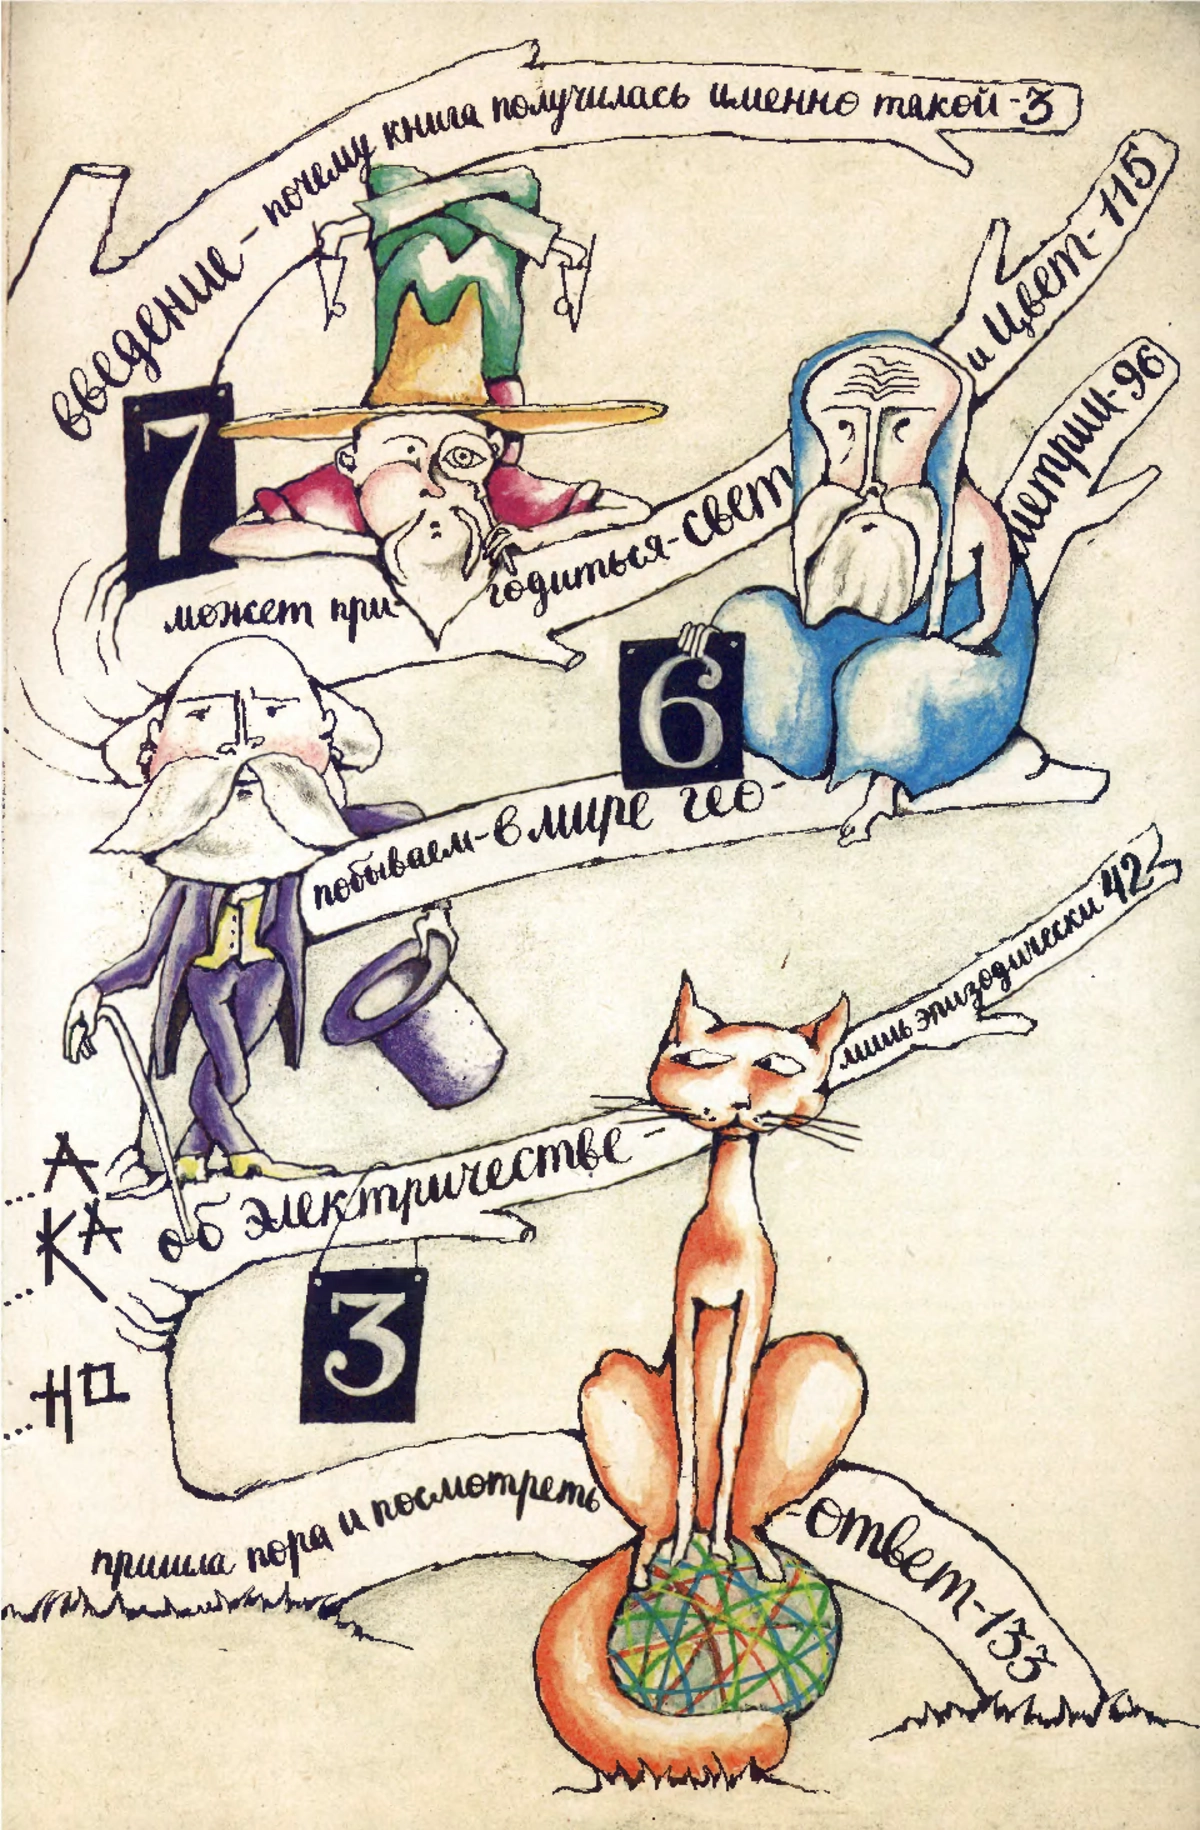 введение - почему книга получилась именно такой - 3
7
может при-
годиться - свет
и цвет - 115
6
побываем - в мире гео-
метрии - 96
...А
...КА
...НО
об электричестве -
лишь эпизодически 42
3
пришла пора и посмотреть
- ответ - 133